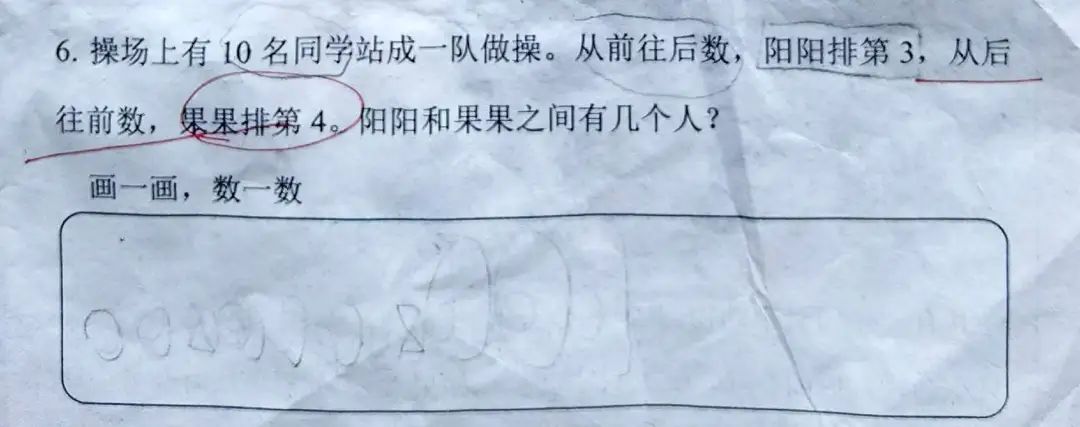 6. 操场上有 10 名同学站成一队做操。从前往后数，阳阳排第 3，从后
往前数，果果排第 4。阳阳和果果之间有几个人？
画一画，数一数